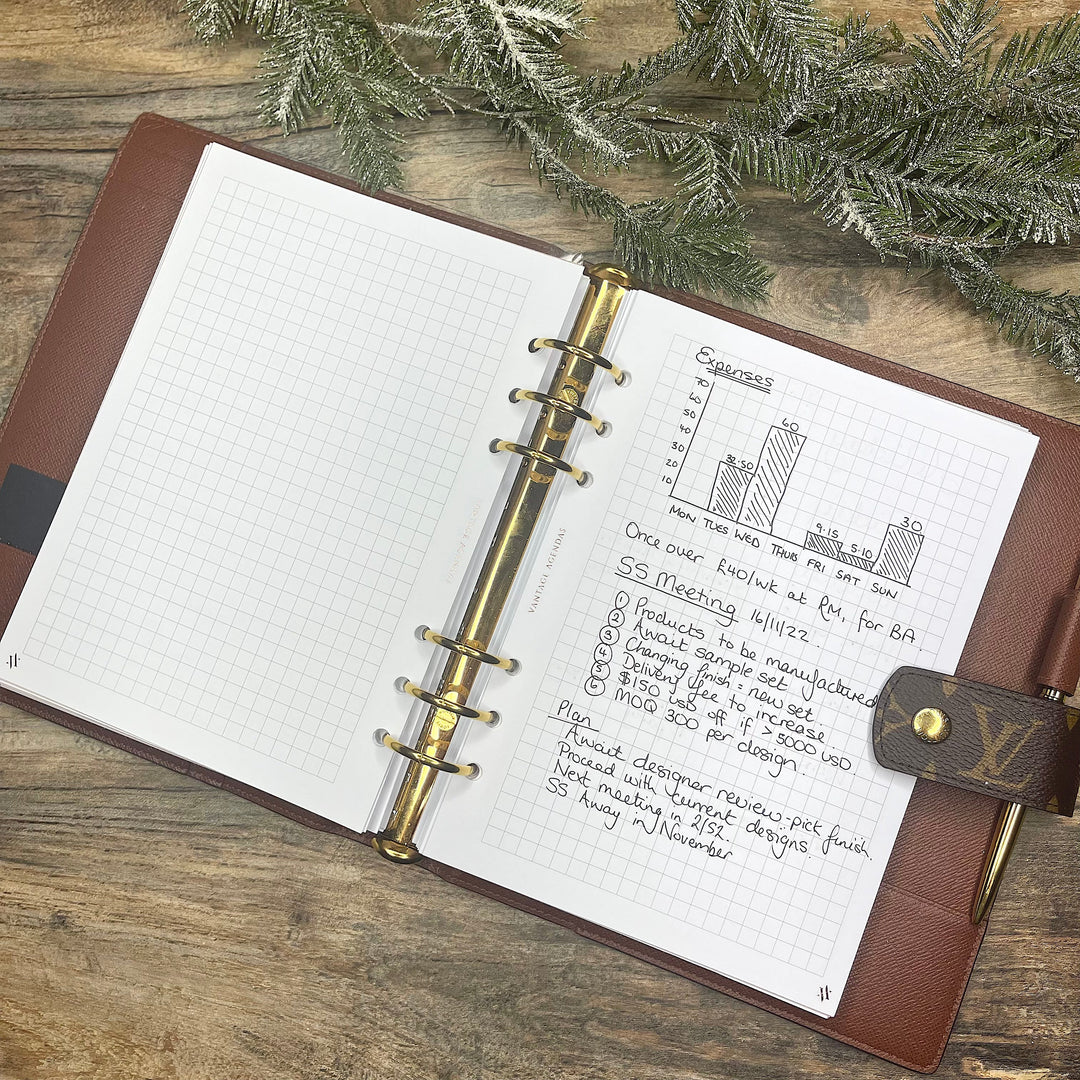 VANTAGE AGENDAS
Expenses
70
60
50
40
30
20
10
32.50
60
9.15
5.10
30
MON TUES WED THURS FRI SAT SUN
Once over £40/wk at RM, for BA.
SS Meeting 16/11/22
① Products to be manufactured
② Await sample set
③ Changing finish = new set.
④ Delivery fee to increase
⑤ $150 USD off if >5000 USD.
⑥ MOQ 300 per design.
Plan
Await designer review - pick finish.
Proceed with current designs.
Next meeting in 2/52.
SS Away in November
LV